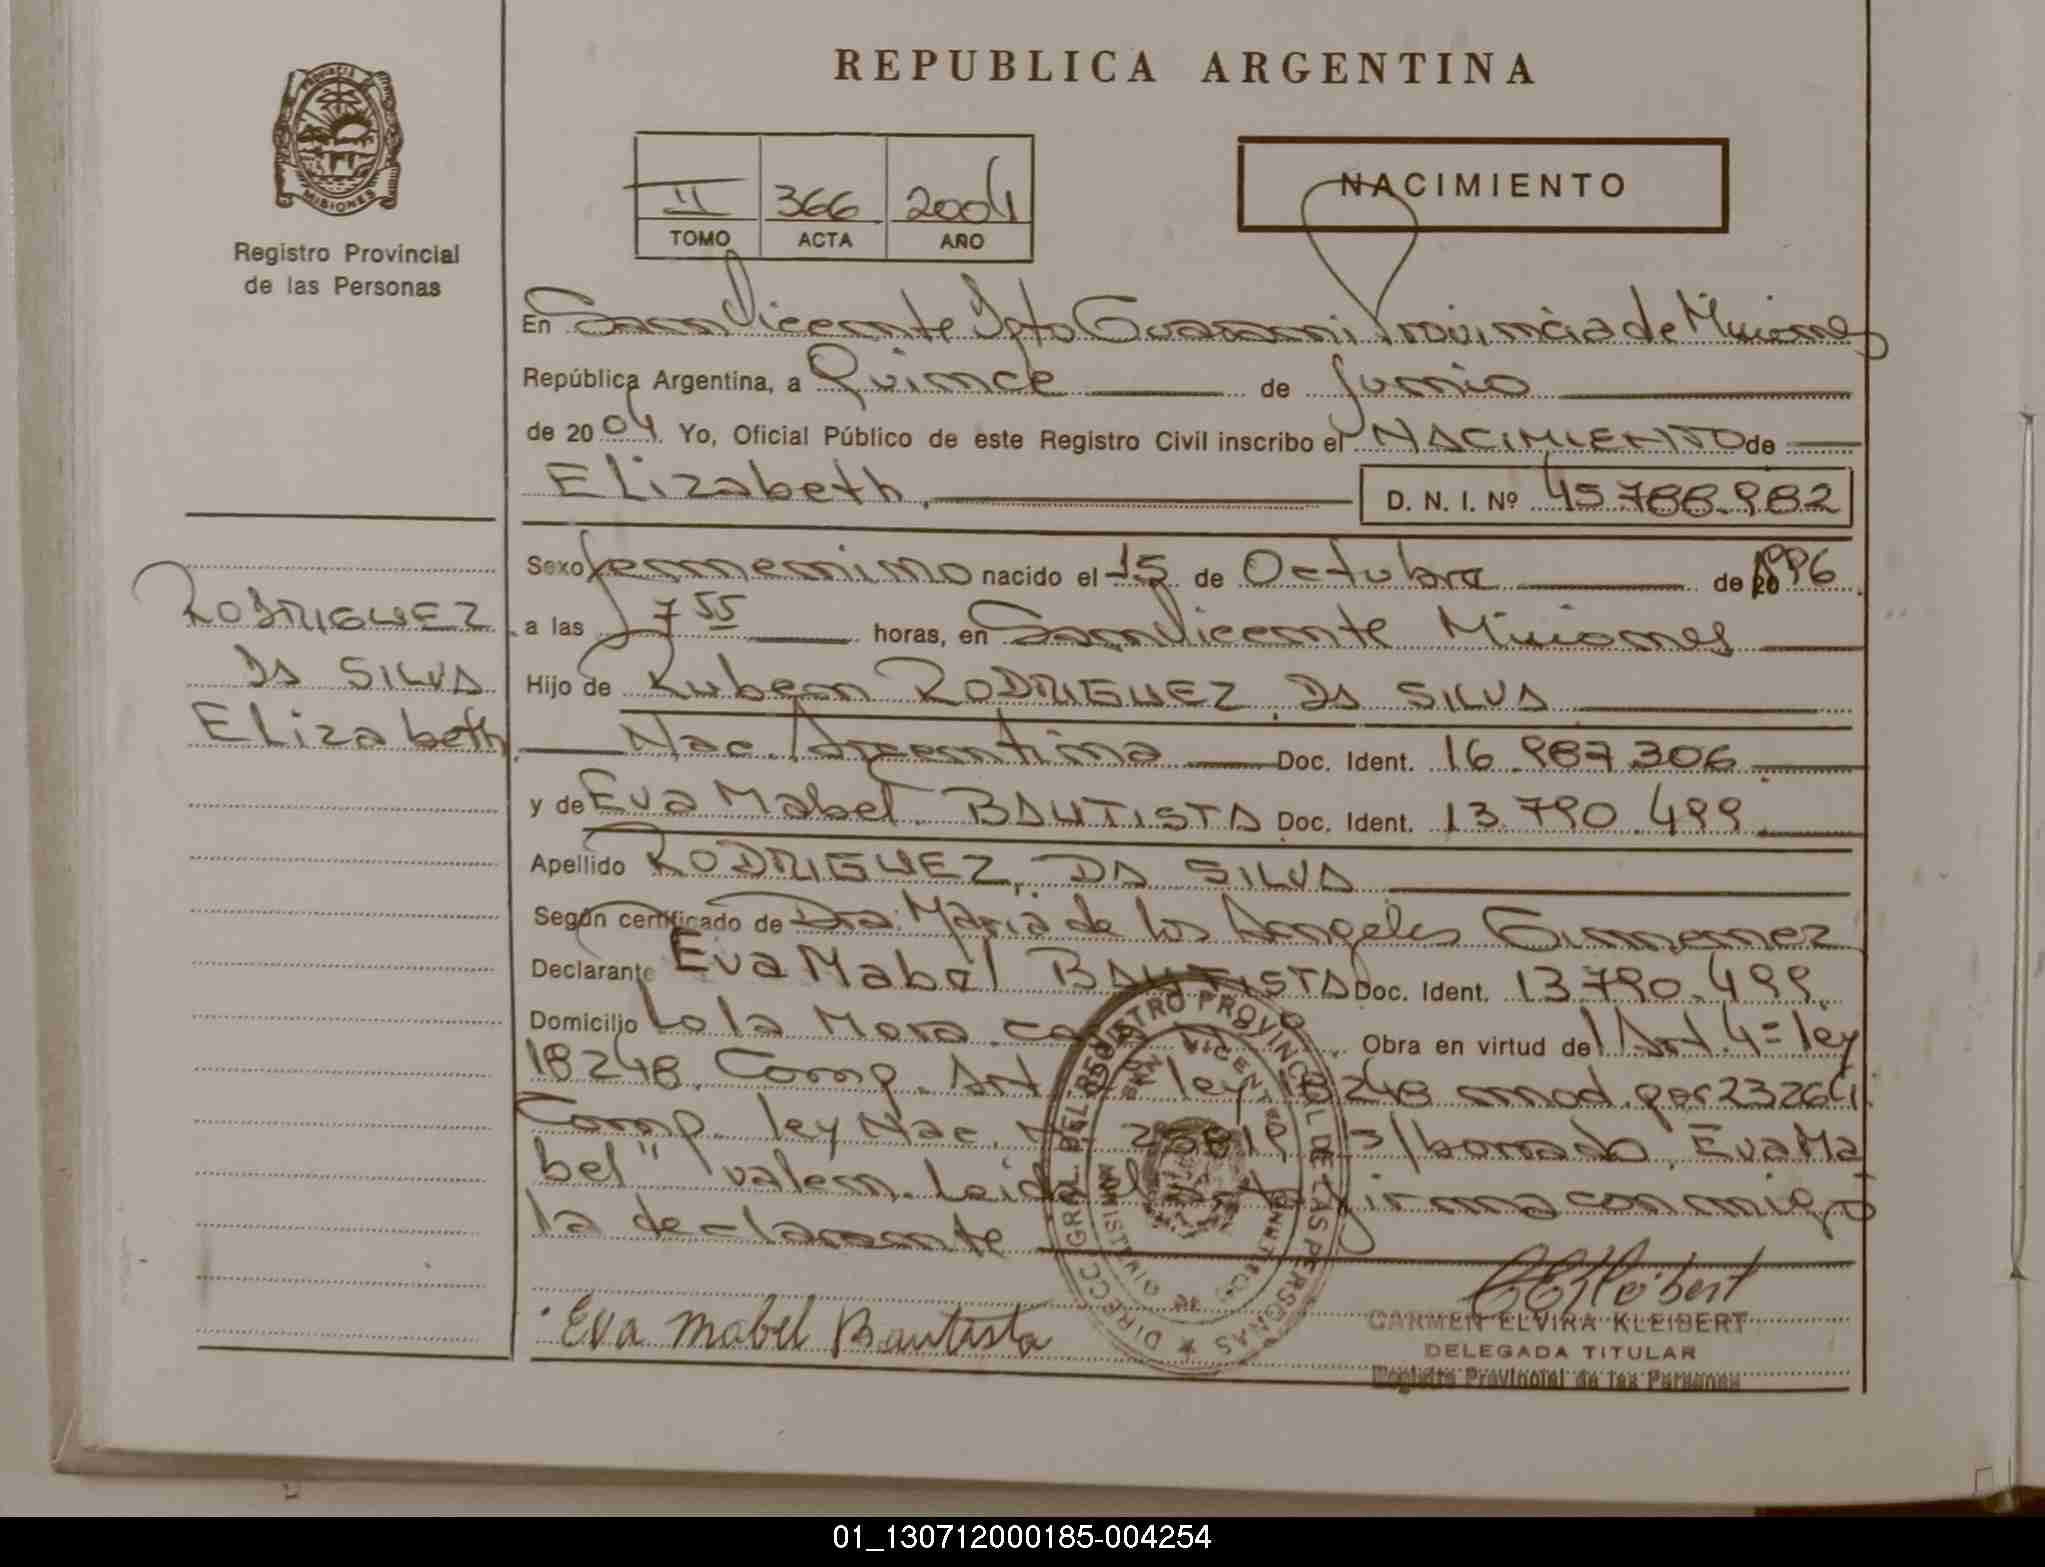 REPUBLICA ARGENTINA
PROVINCIA DE
MISIONES
Registro Provincial
de las Personas
II 366 2004
TOMO ACTA AÑO
NACIMIENTO
En San Vicente Dpto Guarani Provincia de Misiones
República Argentina, a Quince de Junio
de 2004. Yo, Oficial Público de este Registro Civil inscribo el NACIMIENTO de
Elizabeth. D. N. I. Nº 45.788.982
Sexo femenino nacido el 15 de Octubre de 1996.
a las 7 55 horas, en San Vicente Misiones
Hijo de Ruben RODRIGUEZ DA SILVA
Nac. Argentina Doc. Ident. 16.987.306
y de Eva Mabel BAUTISTA Doc. Ident. 13.790.499
Apellido RODRIGUEZ, DA SILVA
Según certificado de Dra. Maria de los Angeles Gimenez
Declarante Eva Mabel BAUTISTA Doc. Ident. 13.790.499.
Domicilio Lola Mora Obra en virtud del Art. 4= ley
18248. Comp. Art ley 18248 mod. por 23264.
Comp. ley Nac. Nº 25819 s/borrado. Eva Ma
bel" valen. Leida el acta firma conmigo
la declarante
RODRIGUEZ
DA SILVA
Elizabeth
DIRECC. GRAL. DEL REGISTRO PROVINCIAL DE LAS PERSONAS
SAN VICENTE
MISIONES
Eva Mabel Bautista
CEKleibert
CARMEN ELVIRA KLEIBERT
DELEGADA TITULAR
Registro Provincial de las Personas
01_130712000185-004254